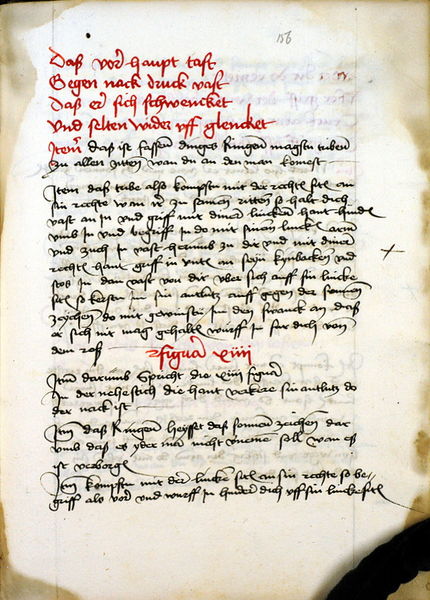 156
Das vor haupt tast
Gegen nack druck vast
Das er sich schwencket
Und selten wider uff glencket
Item das ist fassen ringes Ringen magstu triben
zu allen ziten wan du an den man komest
Item das tribe also kompstu mit der rechten siten an
sin rechte wan er zu samen ritten so halt dich
vast an in und griff mit diner lincken hant hinden
umb in und begriff in do mit sinen lincken arm
und zuch in vast herumb zu dir und mit diner
rechten hant griff in unten an sein kynbacken und
stos in dan vast von dir uber sich auff sin lincke
siten so kersten im sin antlitz auff gegen der sonnen
zeychen do mit gewinstu in den swanck an das
er sich nit mag gehalten wurff in fur dich von
dem ross
figura xiiii
Item darumb spricht die xiiii figura
In der nehestich die hant verkere sin antlitz do
der nack ist
Item das Ringen heysst das sonnen zeichen dar
umb das es yder man nicht verneme soll wan es
ist verborgen
Item kompstu mit der lincken siten an sin rechte so be-
griff als vor und wurff in hinder dich uff sin lincke siten